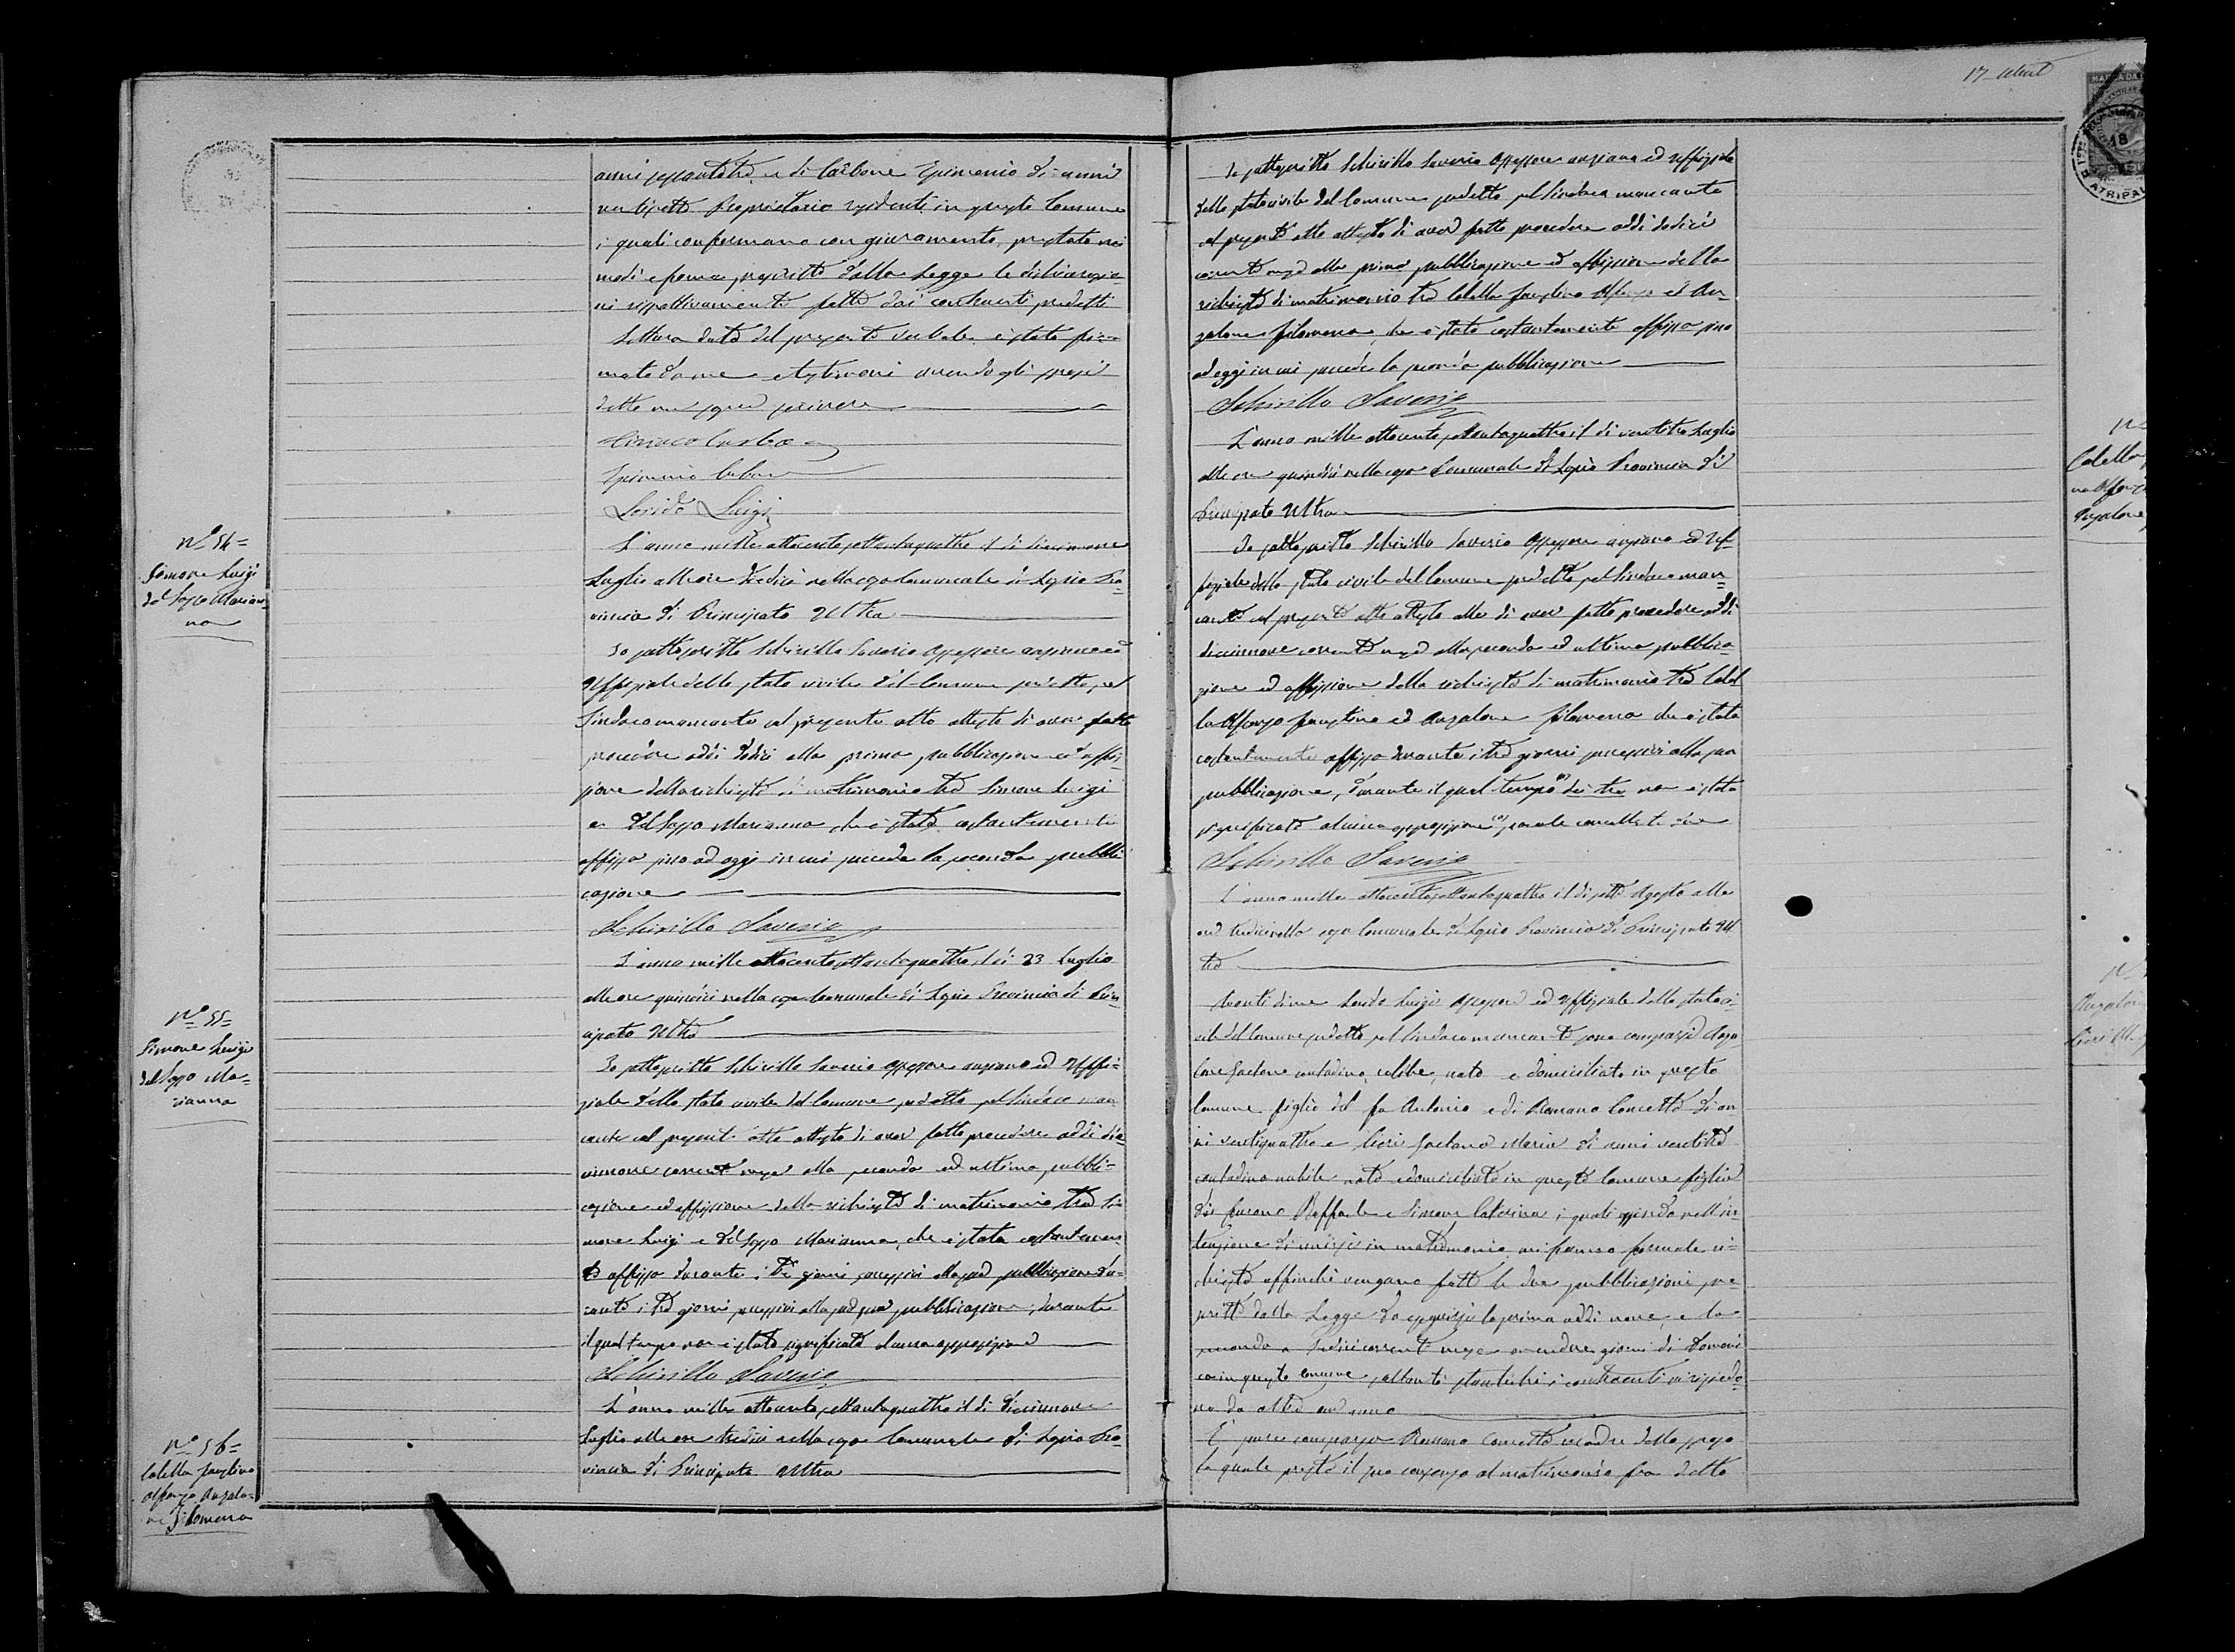 17
N.º 54=
Simone Luigi
del Sozzo Marian=
na
anni sessantatre e di Carbone Epimenio di anni
ventisette Proprietario residenti in questo Comune
i quali confermano con giuramento, prestato nei
modi e forma prescritta dalla Legge le dichiarazio=
ni rispettivamente fatte dai contraenti predetti
Lettura data del presente verbale, è stato fir=
mato da me e testimoni avendo gli sposi
detto non saper scrivere
Ciriaco Carbone
Epimenio Carbone
Luigi
L'anno mille ottocentosettantaquattro il dì diciannove
Luglio alle ore tredici nella casa Comunale di Lapio Pro=
vincia di Principato Ultra
Io sottoscritto Schirillo Saverio Assessore anziano ed
Uffiziale dello stato civile del Comune predetto, pel
Sindaco mancante col presente atto attesto di aver fatto
procedere addì dodici alla prima pubblicazione ed affis=
sione della richiesta di matrimonio tra Simone Luigi
e del Sozzo Marianna che è stata costantemente
affissa sino ad oggi in cui precede la seconda pubbli
cazione
Schirillo Saverio
N.º 55=
Simone Luigi
del Sozzo Ma=
rianna
L'anno mille ottocentosettantaquattro, il dì 23 Luglio
alle ore quindici nella casa Comunale di Lapio Provincia di Prin=
cipato Ultra
Io sottoscritto Schirillo Saverio Assessore anziano ed Uffi=
ziale dello stato civile del Comune predetto pel Sindaco man
cante col presente atto attesto di aver fatto procedere addì dic
iannove corrente mese alla seconda ed ultima pubbli=
cazione ed affissione della richiesta di matrimonio tra Si=
mone Luigi e del Sozzo Marianna, che è stata costantemen
te affissa durante i tre giorni successivi alla sua pubblicazione du=
rante i tre giorni successivi alla sua pubblicazione, durante
il qual tempo non è stata significata alcuna opposizione
Schirillo Saverio
N.º 56=
Calella Faustino
Alfonzo Anzalo=
ne Filomena
L'anno mille ottocentosettantaquattro il dì diciannove
Luglio alle ore tredici nella casa Comunale di Lapio Pro=
vincia di Principato Ultra
Io sottoscritto Schirillo Saverio Assessore anziano ed Uffiziale
dello stato civile del Comune predetto pel Sindaco mancante
col presente atto attesto di aver fatto procedere addì dodici
corrente mese alla prima pubblicazione ed affissione della
richiesta di matrimonio tra Calella Faustino Alfonzo ed An=
zalone Filomena, che è stata costantemente affissa sino
ad oggi in cui precede la seconda pubblicazione
Schirillo Saverio
L'anno mille ottocentosettantaquattro il dì ventitre Luglio
alle ore quindici nella casa Comunale di Lapio Provincia di
Principato Ultra
Io sottoscritto Schirillo Saverio Assessore anziano ed Uf=
fiziale dello stato civile del Comune predetto pel Sindaco man=
cante col presente atto attesto di aver fatto procedere addì
diciannove corrente mese alla seconda ed ultima pubblica=
zione ed affissione della richiesta di matrimonio tra Calel
la Alfonzo Faustino ed Anzalone Filomena che è stata
costantemente affissa durante i tre giorni successivi alla sua
pubblicazione, durante il qual tempo non è stata
significata alcuna opposizione
Schirillo Saverio
L'anno mille ottocentosettantaquattro il dì sette Agosto alle
ore tredici nella casa Comunale di Lapio Provincia di Principato Ul
tra
Avanti di me Luigi Assessore ed Uffiziale dello stato ci=
vile del Comune predetto pel Sindaco mancante sono comparsi Anza
lone Gaetano contadino, celibe, nato e domiciliato in questo
Comune figlio del fu Antonio e di Romano Concetta di an=
ni ventiquattro e Gaetana Maria di anni ventitre
contadina nubile nata e domiciliata in questo Comune figlia
di Raffaele e Simone Caterina, i quali essendo nell'in=
tenzione di unirsi in matrimonio mi fanno formale ri=
chiesta affinchè vengano fatte le due pubblicazioni pre
scritte dalla Legge da eseguirsi la prima addì nove, e la
seconda a sedici corrente mese amendue giorni di Domeni
ca in questo Comune soltanto stantechè i contraenti vi risiedo=
no da oltre un anno
È pure comparsa Romano Concetta madre dello sposo
la quale presta il suo consenso al matrimonio fra detto
18
ATRIPAL
Calella
Anzalone